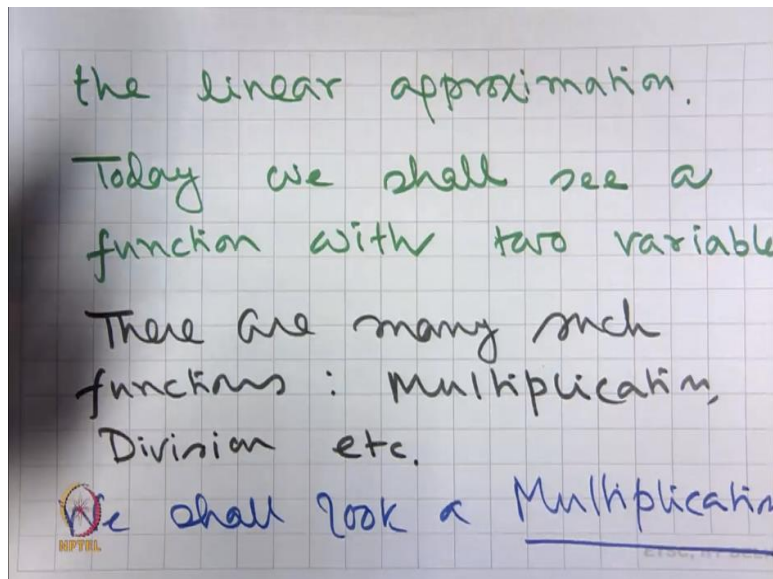 the linear approximation.
Today we shall see a
function with two variable
There are many such
functions : Multiplication,
Division etc.
We shall look a Multiplication
NPTEL
ETSC, IIT DELH